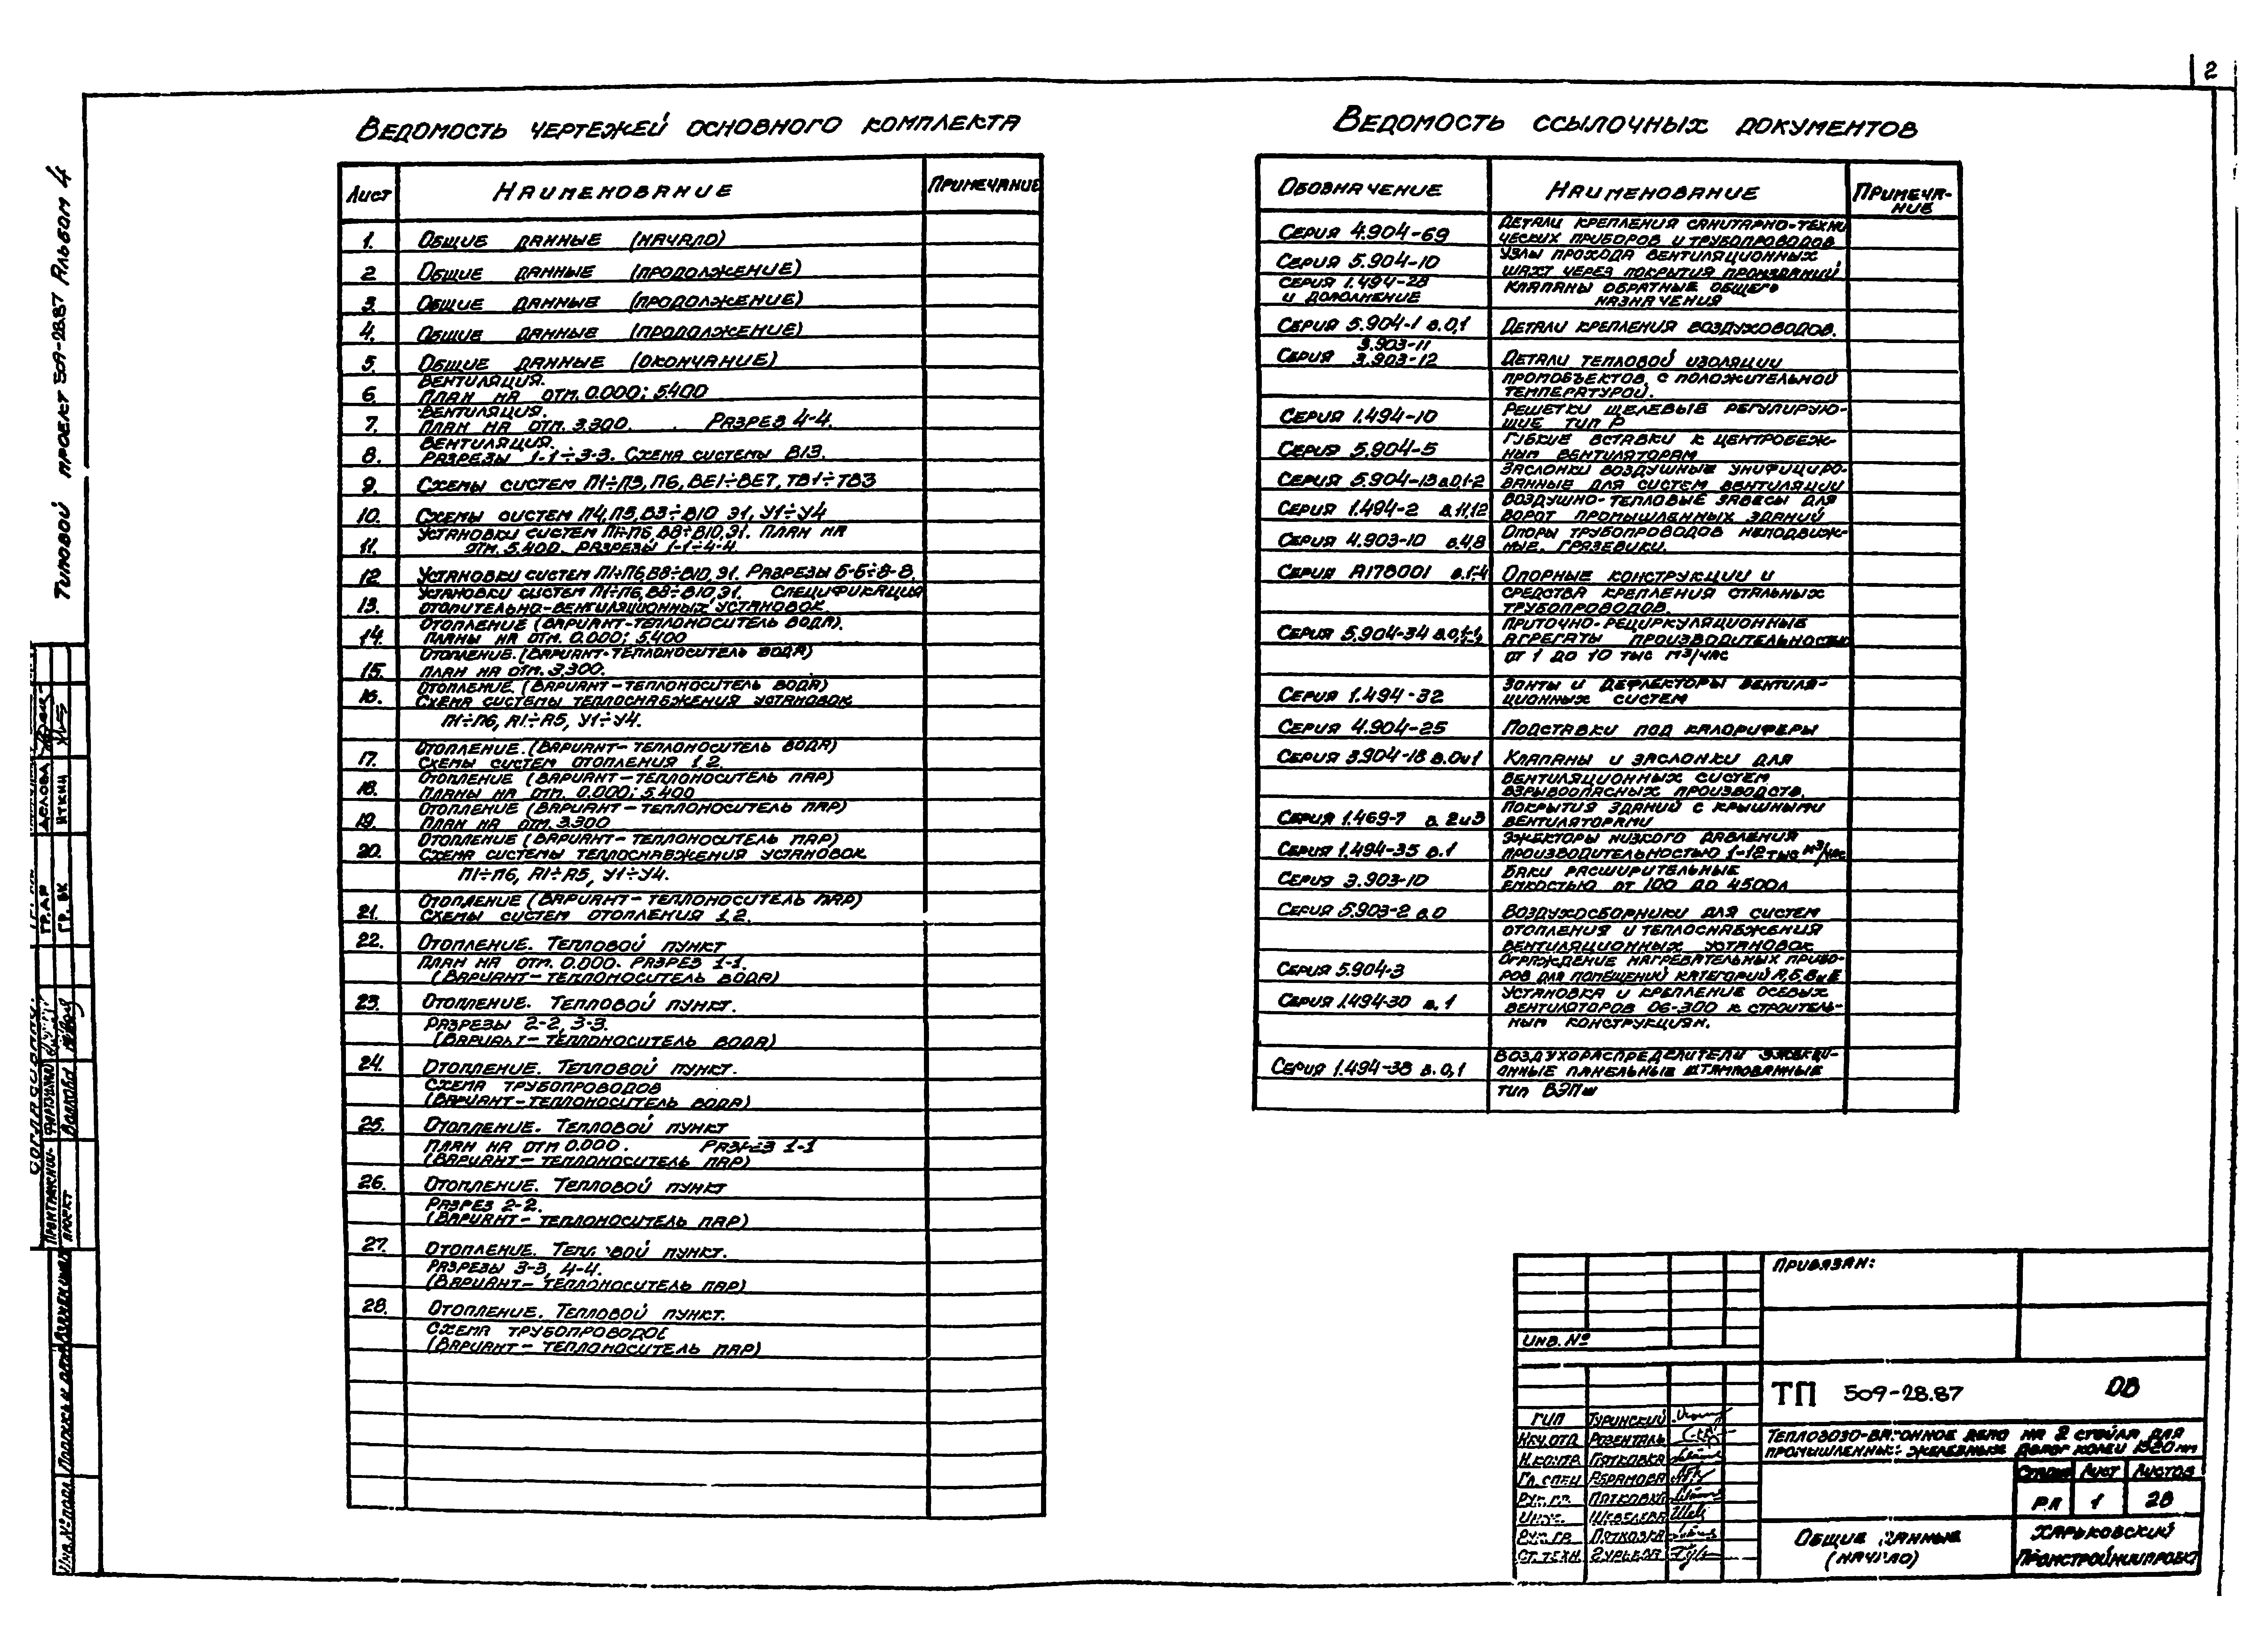 2
Типовой проект 509-28.87 Альбом 4
Ведомость чертежей основного комплекта
Лист Наименование Примечание
1. Общие данные (начало)
2 Общие данные (продолжение)
3. Общие данные (продолжение)
4. Общие данные (продолжение)
5. Общие данные (окончание)
Вентиляция.
6. План на отм. 0.000; 5.400
Вентиляция.
7. План на отм. 3.300. Разрез 4-4.
Вентиляция.
8. Разрезы 1-1÷3-3. Схема системы В13.
9. Схемы систем П1÷П3, П6, ВЕ1÷ВЕ7, ТВ1÷ТВ3
10. Схемы систем П4, П5, В3÷В10 Э1, У1÷У4
Установки систем П1÷П6, В8÷В10, Э1. План на
11. отм. 5.400. Разрезы 1-1÷4-4
12 Установки систем П1÷П6, В8÷В10, Э1. Разрезы 5-5÷8-8.
Установки систем П1÷П6, В8÷В10, Э1. Спецификация
13. отопительно-вентиляционных установок.
Отопление (вариант-теплоноситель вода).
14. Планы на отм. 0.000; 5.400
Отопление. (Вариант-теплоноситель вода)
15. План на отм. 3.300.
Отопление. (Вариант-теплоноситель вода)
16. Схема системы теплоснабжения установок
П1÷П6, А1÷А5, У1÷У4.
Отопление. (Вариант-теплоноситель вода)
17. Схемы систем отопления 1,2.
Отопление (вариант-теплоноситель пар)
18. Планы на отм. 0.000; 5.400
Отопление (вариант-теплоноситель пар)
19. План на отм. 3.300
Отопление (вариант-теплоноситель пар)
20. Схема системы теплоснабжения установок
П1÷П6, А1÷А5, У1÷У4.
Отопление (вариант-теплоноситель пар)
21. Схемы систем отопления 1,2.
22. Отопление. Тепловой пункт
План на отм. 0.000. Разрез 1-1.
(Вариант-теплоноситель вода)
23. Отопление. Тепловой пункт.
Разрезы 2-2, 3-3.
(Вариант-теплоноситель вода)
24. Отопление. Тепловой пункт.
Схема трубопроводов
(Вариант-теплоноситель вода)
25. Отопление. Тепловой пункт
План на отм 0.000. Разрез 1-1
(Вариант-теплоноситель пар)
26. Отопление. Тепловой пункт
Разрез 2-2.
(Вариант-теплоноситель пар)
27. Отопление. Тепловой пункт.
Разрезы 3-3, 4-4.
(Вариант-теплоноситель пар)
28. Отопление. Тепловой пункт.
Схема трубопроводов
(Вариант-теплоноситель пар)
Ведомость ссылочных документов
Обозначение Наименование Примеча-
ние
Серия 4.904-69 Детали крепления санитарно-техни
ческих приборов и трубопроводов
Серия 5.904-10 Узлы прохода вентиляционных
шахт через покрытия промзданий
Серия 1.494-28 Клапаны обратные общего
и дополнение назначения
Серия 5.904-1 в.0,1 Детали крепления воздуховодов.
3.903-11
Серия 3.903-12 Детали тепловой изоляции
промобъектов с положительной
температурой.
Серия 1.494-10 Решетки щелевые регулирую-
щие тип Р
Серия 5.904-5 Гибкие вставки к центробеж-
ным вентиляторам
Серия 5.904-13 в.0,1-2 Заслонки воздушные унифициро-
ванные для систем вентиляции
Серия 1.494-2 в.11,12 Воздушно-тепловые завесы для
ворот промышленных зданий
Серия 4.903-10 в.4,8 Опоры трубопроводов неподвиж-
ные. Грязевики.
Серия А178001 в.1-4 Опорные конструкции и
средства крепления стальных
трубопроводов.
Приточно-рециркуляционные
Серия 5.904-34 агрегаты производительностью
от 1 до 10 тыс м³/час
Серия 1.494-32 Зонты и дефлекторы вентиля-
ционных систем
Серия 4.904-25 Подставки под калориферы
Серия 3.904-18 в.0и1 Клапаны и заслонки для
вентиляционных систем
взрывоопасных производств.
Серия 1.469-7 в. 2и3 Покрытия зданий с крышными
вентиляторами
Серия 1.494-35 в.1 Эжекторы низкого давления
производительностью 1-12 тыс м³/час
Серия 3.903-10 Баки расширительные
емкостью от 100 до 4500л
Серия 5.903-2 в.0 Воздухосборники для систем
отопления и теплоснабжения
вентиляционных установок
Серия 5.904-3 Ограждение нагревательных прибо-
ров для помещений категорий А,Б,В и Е
Серия 1.494-30 в.1 Установка и крепление осевых
вентиляторов 06-300 к строитель-
ным конструкциям.
Воздухораспределители эжекци-
Серия 1.494-38 в.0,1 онные панельные штампованные
тип ВЭПш
Привязан:
Инв. №
ТП 509-28.87 ОВ
Тепловозо-вагонное депо на 2 стойла для
промышленных железных дорог колеи 1520 мм
Стадия Лист Листов
РП 1 28
Общие данные
(начало)
Харьковский
Промстройниипроект
ГИП Туринский
Нач.отд Розенталь
Н.контр Пятковка
Гл.спец Абрамова
Рук.гр. Пятковка
Инж. Шевелева
Рук.гр. Пятковка
Ст.техн. Гурьева
Согласовано:
Гр. АР
Гр. ВК Иткин
Волкова
Инв.№подл. Подпись и дата Взам.инв.№